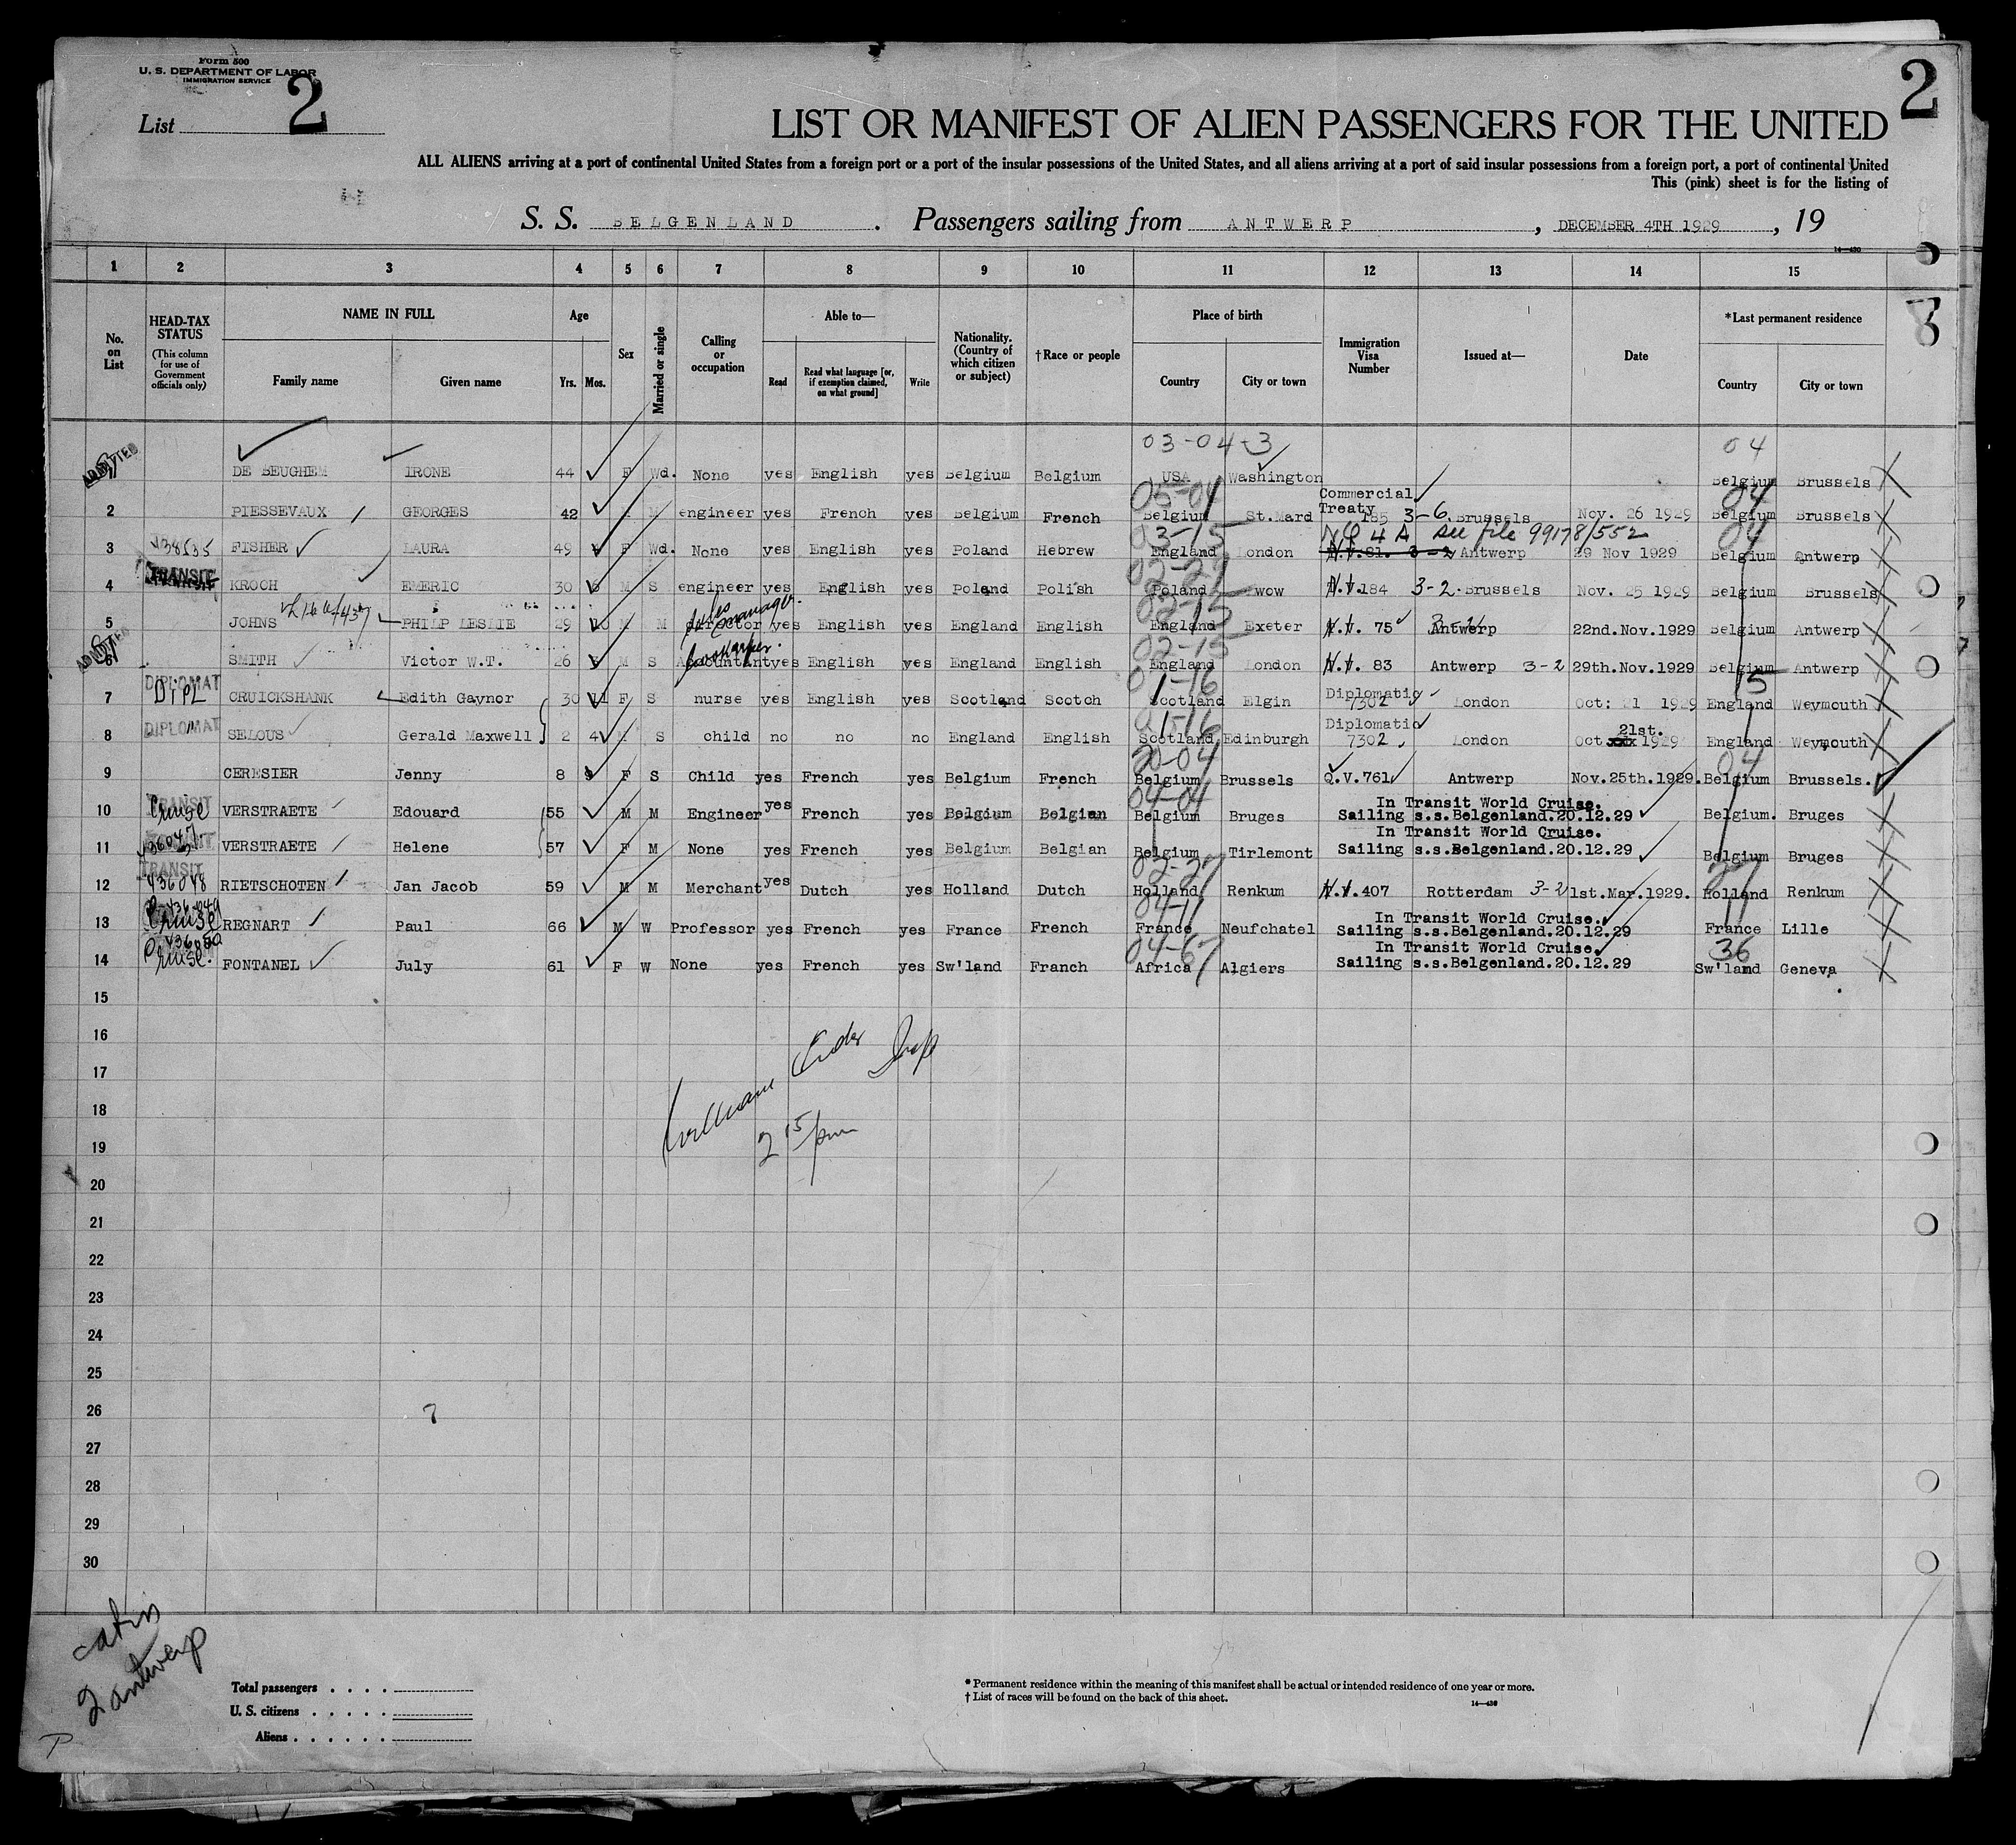 Form 500
U. S. DEPARTMENT OF LABOR
IMMIGRATION SERVICE
List 2
2
LIST OR MANIFEST OF ALIEN PASSENGERS FOR THE UNITED
ALL ALIENS arriving at a port of continental United States from a foreign port or a port of the insular possessions of the United States, and all aliens arriving at a port of said insular possessions from a foreign port, a port of continental United
This (pink) sheet is for the listing of
S. S. BELGENLAND . Passengers sailing from ANTWERP , DECEMBER 4TH 1929 , 19
14—430
1 2 3 4 5 6 7 8 9 10 11 12 13 14 15
No. on List
HEAD-TAX STATUS (This column for use of Government officials only)
NAME IN FULL
Family name Given name
Age
Yrs. Mos.
Sex
Married or single
Calling or occupation
Able to—
Read
Read what language [or, if exemption claimed, on what ground]
Write
Nationality. (Country of which citizen or subject)
† Race or people
Place of birth
Country City or town
Immigration Visa Number
Issued at—
Date
* Last permanent residence
Country City or town
03-04-3 04
ADMITTED DE BEUGHEM IRONE 44 F Wd. None yes English yes Belgium Belgium USA Washington Belgium Brussels
05-04 Commercial Treaty 04
2 PIESSEVAUX GEORGES 42 M M engineer yes French yes Belgium French Belgium St.Mard 185 3-6. Brussels Nov. 26 1929 Belgium Brussels
03-15 NQ 4 A see file 99178/552 04
3 FISHER LAURA 49 F Wd. None yes English yes Poland Hebrew England London N.V. 81. 3-2 Antwerp 29 Nov 1929 Belgium Antwerp
02-27
4 TRANSIT KROCH EMERIC 30 6 M S engineer yes English yes Poland Polish Poland Lwow N.V. 184 3-2. Brussels Nov. 25 1929 Belgium Brussels
02-15 sales manager.
5 JOHNS PHILP LESLIE 29 10 M M director yes English yes England English England Exeter N.V. 75 3-2 Antwerp 22nd.Nov.1929 Belgium Antwerp
02-15 bookkeeper.
ADMITTED 6 SMITH Victor W.T. 26 M S Accountant yes English yes England English England London N.V. 83 Antwerp 3-2 29th.Nov.1929 Belgium Antwerp
DIPLOMAT 01-16 15
7 DIPL CRUICKSHANK Edith Gaynor 30 11 F S nurse yes English yes Scotland Scotch Scotland Elgin Diplomatic 7302 London Oct: 21 1929 England Weymouth
DIPLOMAT 01-16
8 SELOUS Gerald Maxwell 2 4 M S child no no no England English Scotland Edinburgh Diplomatic 7302 London Oct 21st. xxx 1929 England Weymouth
20-04 04
9 CERESIER Jenny 8 F S Child yes French yes Belgium French Belgium Brussels Q.V.761 Antwerp Nov.25th.1929. Belgium Brussels.
TRANSIT 04-04
10 Cruise VERSTRAETE Edouard 55 M M Engineer yes French yes Belgium Belgian Belgium Bruges In Transit World Cruise. Sailing s.s.Belgenland.20.12.29 Belgium. Bruges
TRANSIT
11 VERSTRAETE Helene 57 F M None yes French yes Belgium Belgian Belgium Tirlemont In Transit World Cruise. Sailing s.s.Belgenland.20.12.29 Belgium Bruges
TRANSIT 02-27 27
12 436048 RIETSCHOTEN Jan Jacob 59 M M Merchant yes Dutch yes Holland Dutch Holland Renkum N.V.407 Rotterdam 3-2 1st.Mar.1929. Holland Renkum
436049 04-11 11
13 Cruise REGNART Paul 66 M W Professor yes French yes France French France Neufchatel In Transit World Cruise. Sailing s.s.Belgenland.20.12.29 France Lille
436050 04-67 36
14 Cruise. FONTANEL July 61 F W None yes French yes Sw'land Franch Africa Algiers In Transit World Cruise. Sailing s.s.Belgenland.20.12.29 Sw'land Geneva
15
16
17
William
18
2 15/pm
19
20
21
22
23
24
25
26
7
27
28
29
30
2 Antwerp
Total passengers . . . .
U. S. citizens . . . . .
Aliens . . . . . .
* Permanent residence within the meaning of this manifest shall be actual or intended residence of one year or more.
† List of races will be found on the back of this sheet.
14—430
P